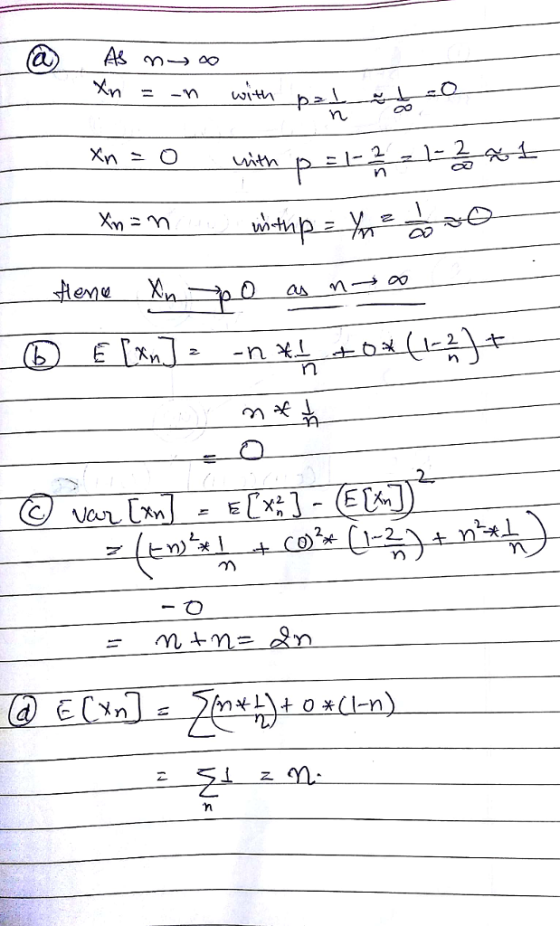 (a) As n→∞
Xn = -n with p=1/n ≈ 1/∞ =0
Xn = 0 with p = 1-2/n = 1-2/∞ ≈ 1
Xn = n with p = 1/n = 1/∞ ≈ 0
Hence Xn →p 0 as n→∞
(b) E[Xn] = -n * 1/n + 0 * (1-2/n) +
n * 1/n
= 0
(c) var[Xn] = E[Xn²] - (E[Xn])²
= ((-n)² * 1/n + (0)² * (1-2/n) + n² * 1/n)
- 0
= n + n = 2n
(d) E[Xn] = ∑(n * 1/n) + 0 * (1-n)
= ∑n 1 = n.